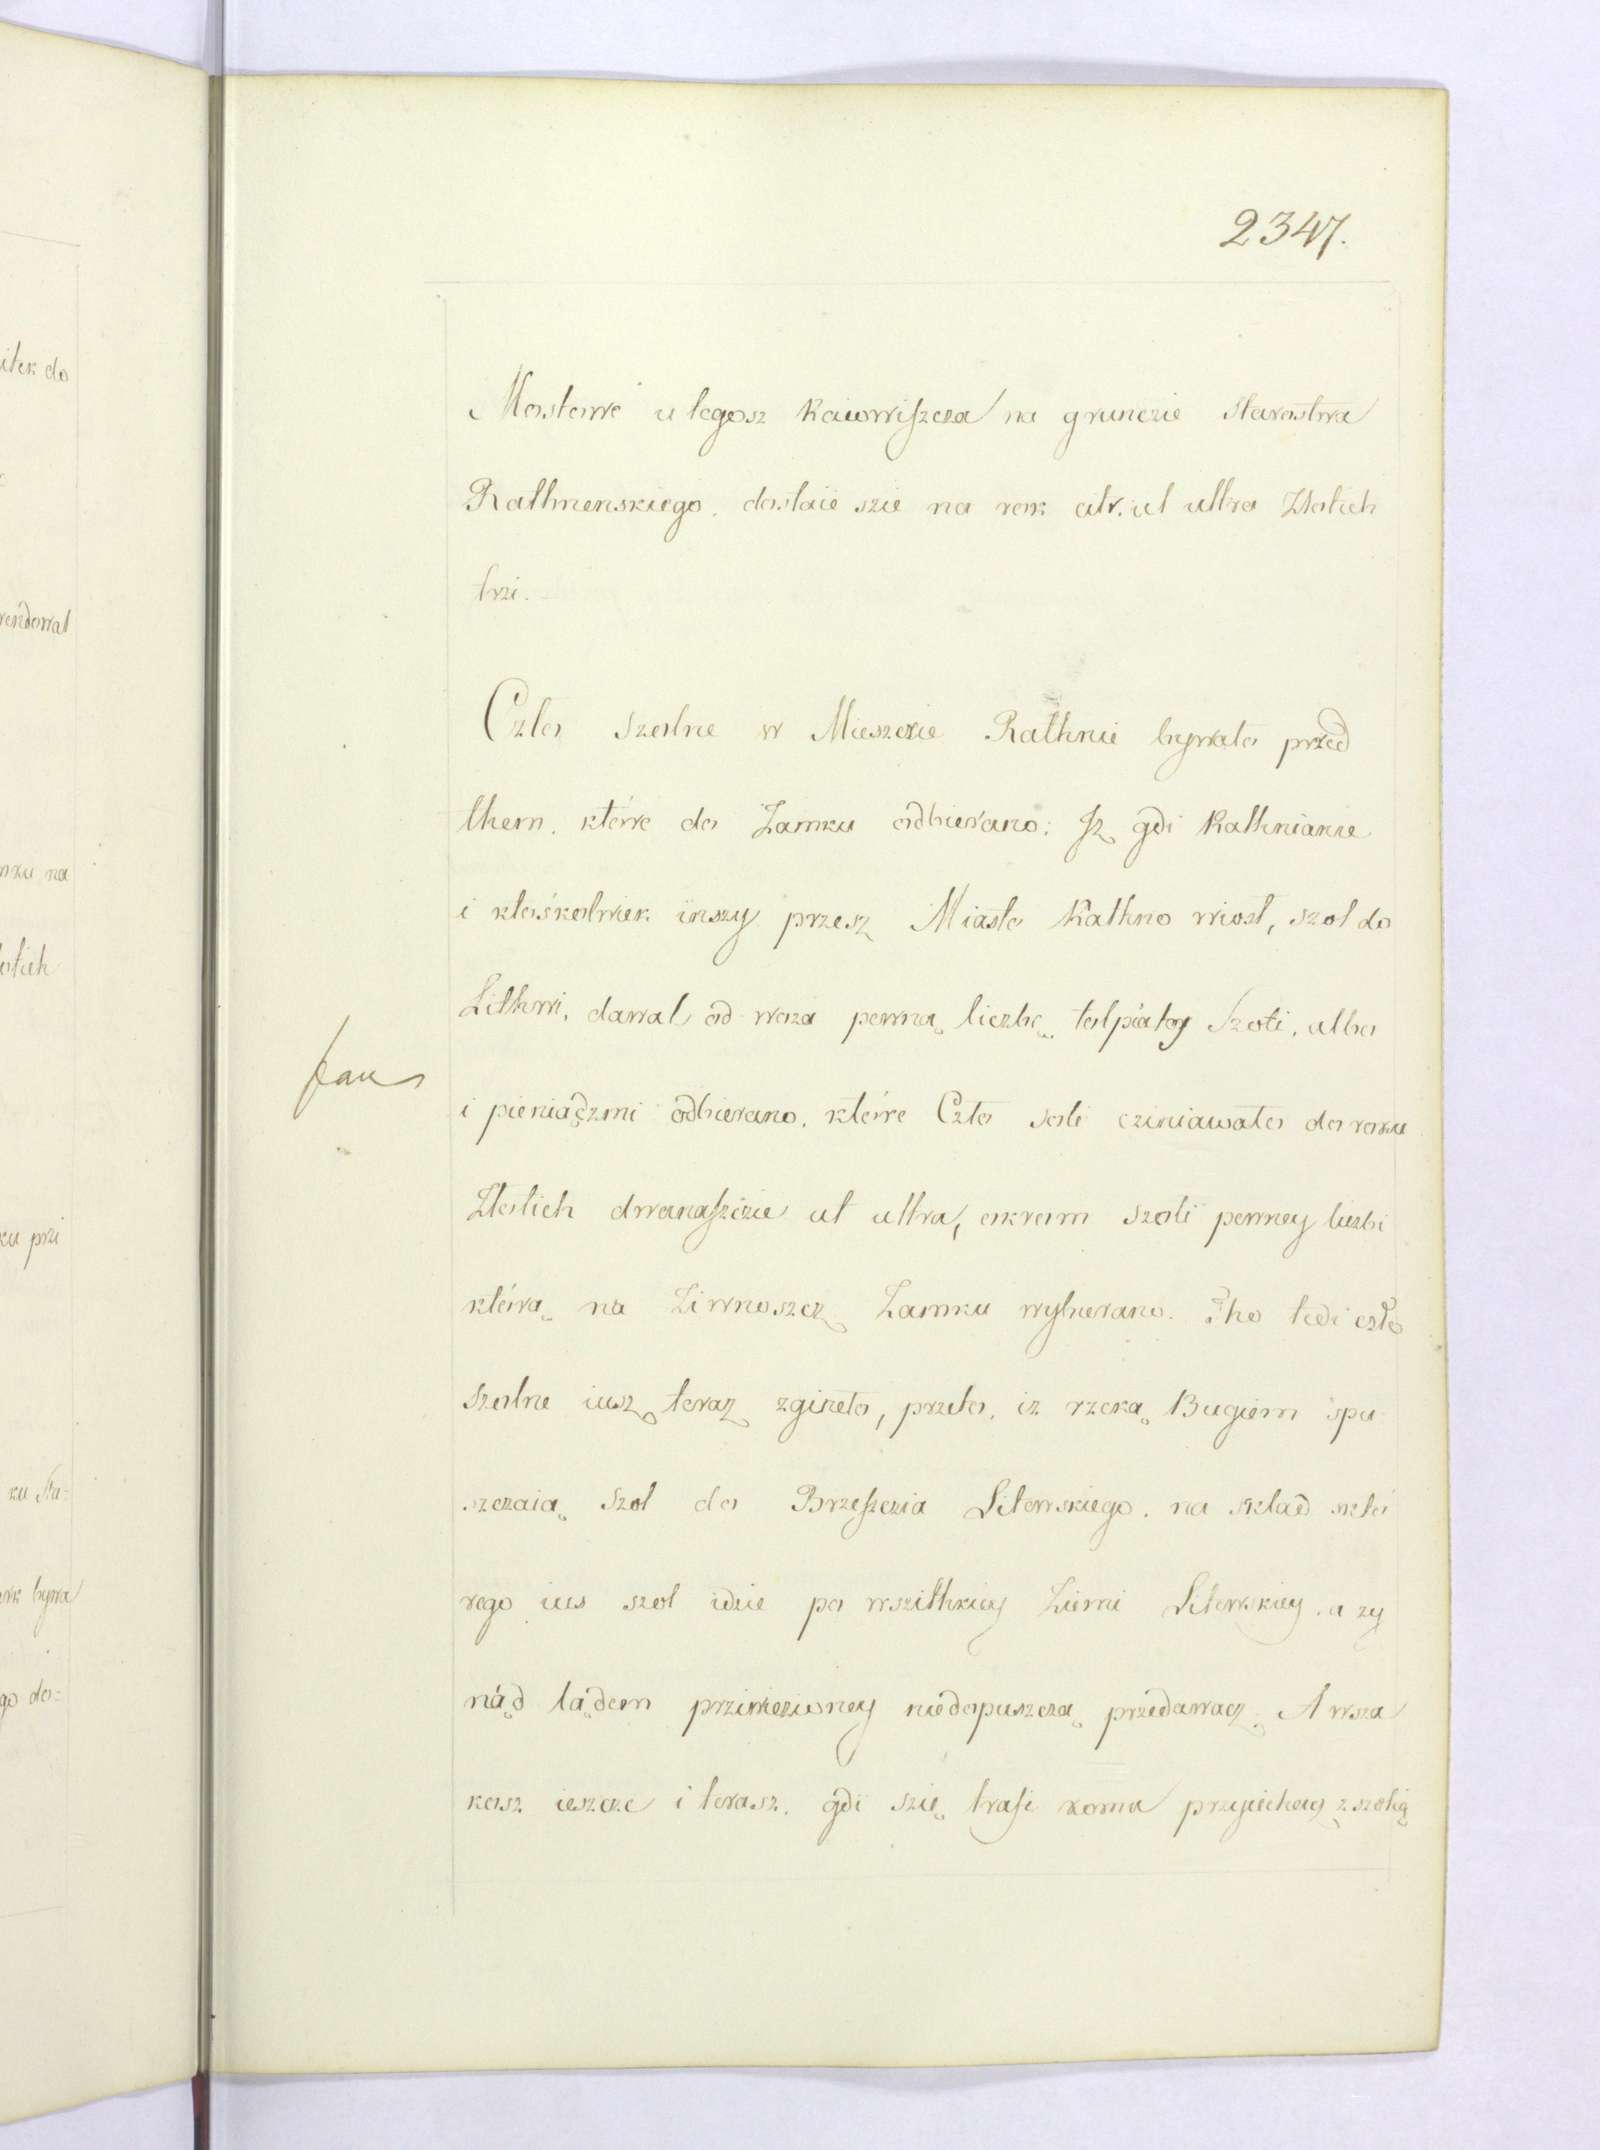 2347.
itek do
rendował
mku na
łotich
ku pri
ku sta=
ark bywa
go do=
Mostowe u tegosz Kaiowiszcza na gruncie Starostwa
Rathnenskiego. dostaie szie na rok citr. ut ultra Złotich
trzi.
Czło Szolne w Miesczie Rathnie bywało przed
them. które do Zamku odbierano; Jz gdi Rathnianie
i ktośkolwiek inszy przesz Miasto Rathno wiosł, szol do
Lithwi, dawał od woza pewną liczbę tolpiatoy Szoli, albo
i pieniądzmi odbierano. które Czło soli cziniawało do roku
Złotich dwanaszczie ut ultra, okrom szoli pewney liczbi
którą na Ziwnoszcz Zamku wybierano. Tho tedi czło
szolne iusz teraz zginęło, przeto, iz rzeką Bugiem spu
szczaią Szol do Brzeszczia Litewskiego. na skład skto
rego ius szol idzie po wszithkiey Ziemi Litewskiey. a zy
nąd lądem prziwezioney niedopuszczą przedawacz. A wsza
kosz ieszcze i terasz. gdi szię trafi komu przyiechay z szolią